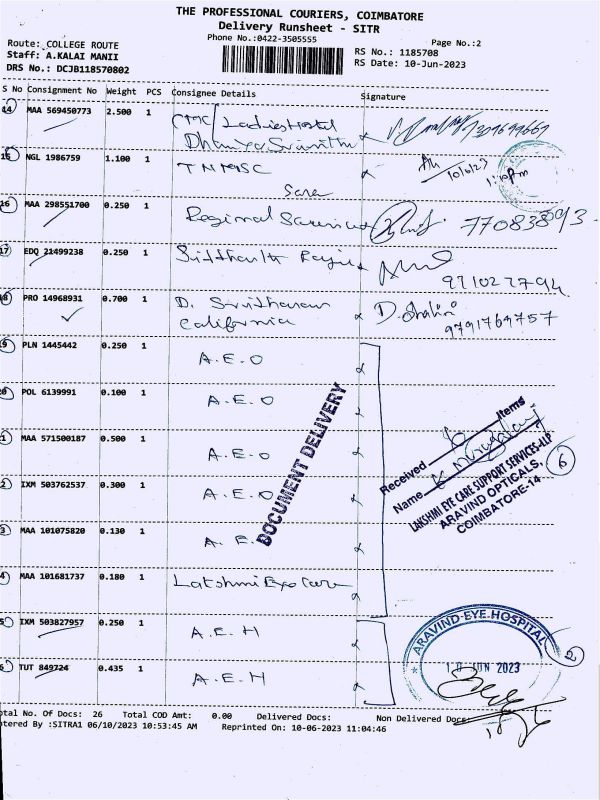 THE PROFESSIONAL COURIERS, COIMBATORE
Delivery Runsheet - SITR
Phone No.:0422-3505555
Page No.:2
Route: COLLEGE ROUTE
Staff: A.KALAI MANII
DRS No.: DCJB118570802
RS No.: 1185708
RS Date: 10-Jun-2023
S No Consignment No Weight PCS Consignee Details Signature
14 MAA 569450773 2.500 1 CMC/ Ladies Hostel
15 NGL 1986759 1.100 1 TNMSC
10/6/23
1:10pm
16 MAA 298551700 0.250 1 Regional
17 EDQ 21499238 0.250 1
9710227794
18 PRO 14968931 0.700 1 D.
California D. Shalini
9791769757
19 PLN 1445442 0.250 1 A.E.O
20 POL 6139991 0.100 1 A.E.O
1 MAA 571500187 0.500 1 A.E.O
2 IXM 503762537 0.300 1 A.E.O
3 MAA 101075820 0.130 1 A.E.
4 MAA 101681737 0.180 1 Lakshmi Eye Care
5 IXM 503827957 0.250 1 A.E.H
6 TUT 849724 0.435 1 A.E.H
DOCUMENT DELIVERY
Received Items
Name
LAKSHMI EYE CARE SUPPORT SERVICES-LLP
ARAVIND OPTICALS,
COIMBATORE-14
6
ARAVIND-EYE-HOSPITAL
10 JUN 2023
2
otal No. Of Docs: 26 Total COD Amt: 0.00 Delivered Docs: Non Delivered Docs:
ntered By :SITRA1 06/10/2023 10:53:45 AM Reprinted On: 10-06-2023 11:04:46